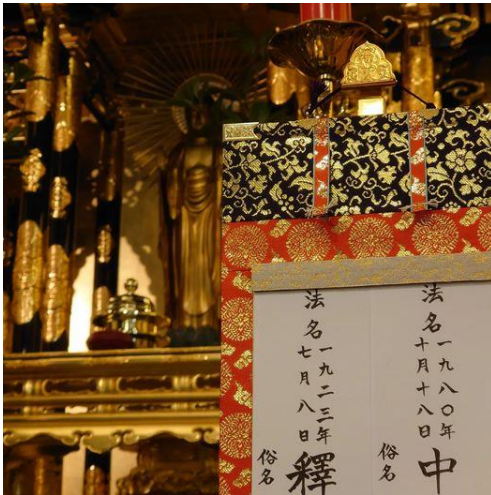 法名
一九八〇年
十月十八日
俗名
中
法名
一九二三年
七月八日
俗名
釋